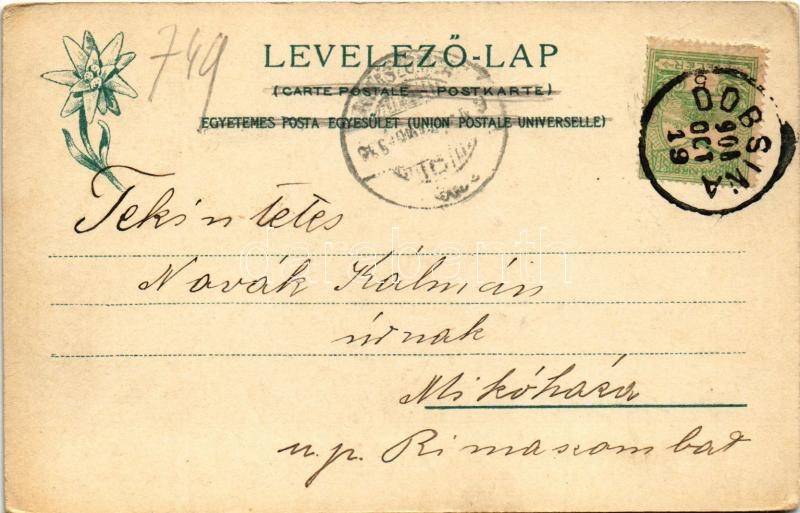 749
LEVELEZŐ-LAP
(CARTE POSTALE POSTKARTE)
EGYETEMES POSTA EGYESÜLET (UNION POSTALE UNIVERSELLE)
DOBSINA
906
OCT
19
Tekintetes
Novák Kálmán
darabanth
úrnak
Mikóháza
u.p. Rimaszombat